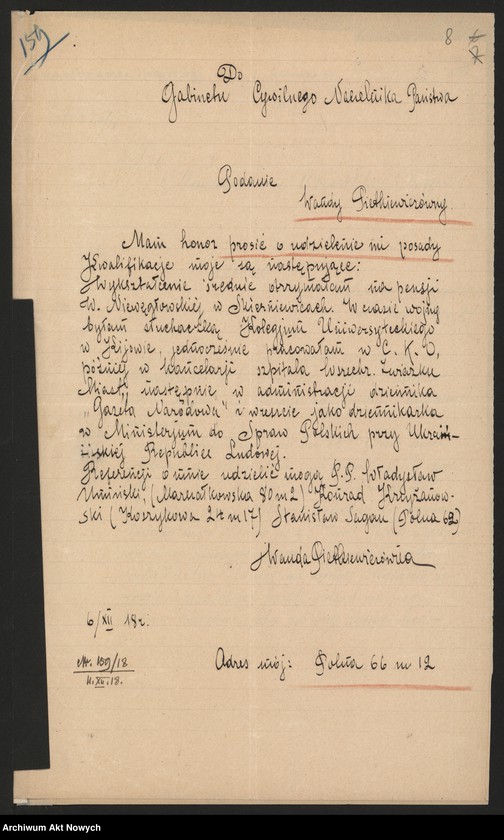 159
8
Do
Gabinetu Cywilnego Naczelnika Państwa
Podanie
Wandy Pietkiewiczówny.
Mam honor prosić o udzielenie mi posady
Kwalifikacje moje są następujące:
Wykształcenie średnie otrzymałam na pensji
W. Niewęgłowskiej w Skierniewicach. W czasie wojny
byłam słuchaczką Kolegjum Uniwersyteckiego
w Kijowie, jednocześnie pracowałam w C. K. O,
później w kancelarji szpitala Wszechr. Związku
Miast, następnie w administracji dziennika
„Gazeta Narodowa" i wreszcie jako dziennikarka
w Ministerjum do Spraw Polskich przy Ukraiń-
skiej Republice Ludowej.
Referencji o mnie udzielić mogą P.P. Władysław
Umiński (Marszałkowska 80 m 2) Konrad Krzyżanow-
ski (Koszykowa 24 m 17) Stanisław Sagan (Polna 62)
Wanda Pietkiewiczówna
6/XII 18 r.
Nr. 159/18
11.XII.18.
Adres mój: Polna 66 m 12
Archiwum Akt Nowych